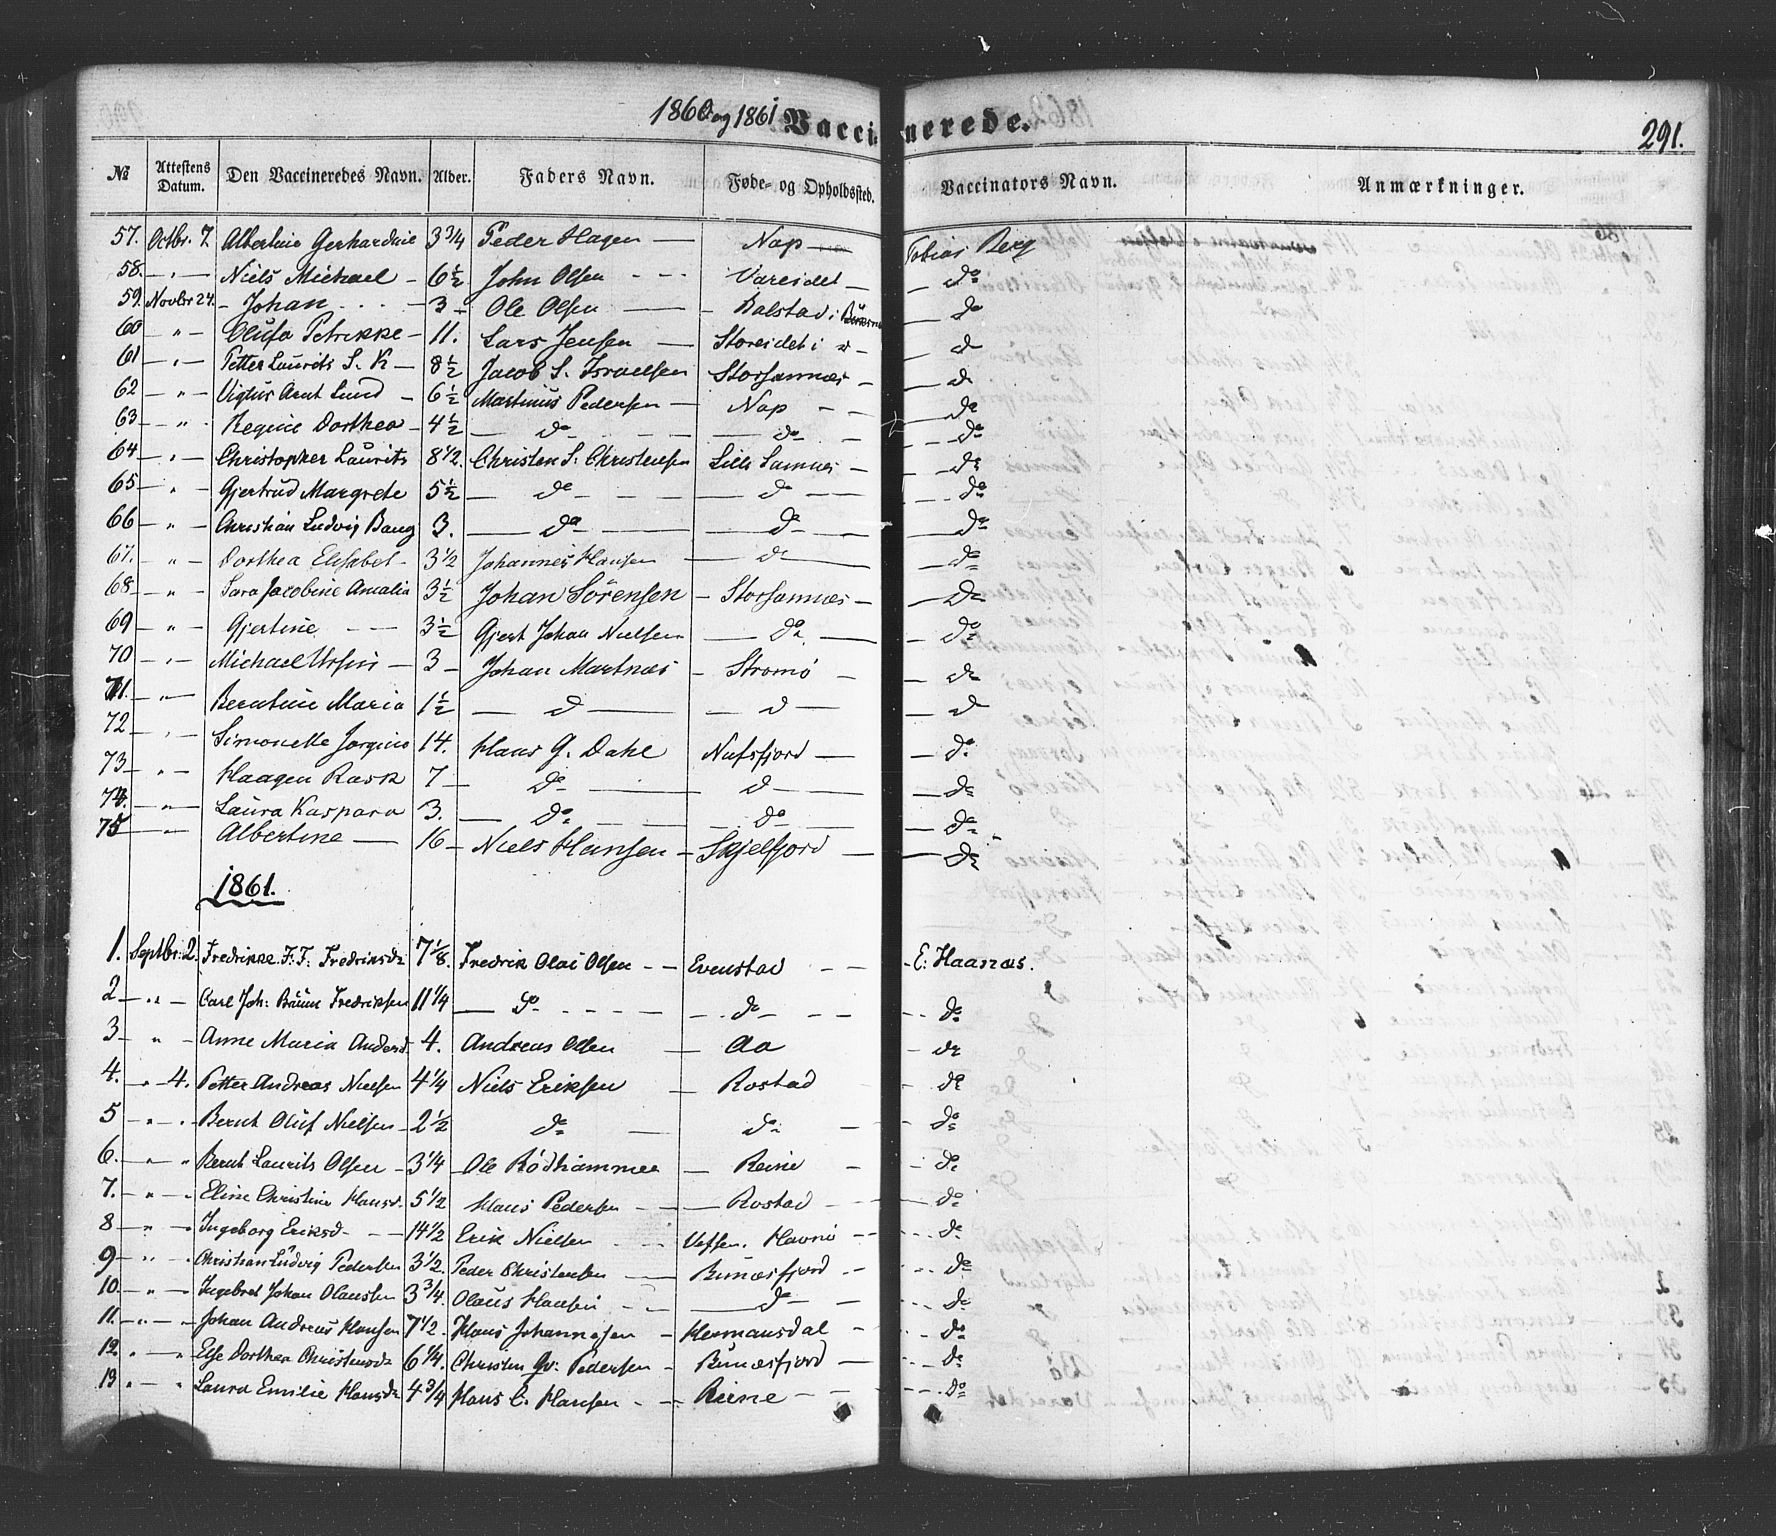 1860 og 1861 Vaccinerede. 291.
№ Attestens Datum. Den Vaccineredes Navn. Alder. Faders Navn. Føde- og Opholdssted. Vaccinators Navn. Anmærkninger.
57. Octbr. 7. Albertine Gerhardine 3 3/4 Peder Hagen — Nap — Tobias Berg
58. — „ — Niels Michael — 6 1/2 John Olsen - - - Vareidet — — do
59. Novbr 24. — Johan . . . - 3 — Ole Olsen — — Balstad i — do
60 — „ — Olufa Petrikke — 11. Lars Jensen — Storeidet i d — — d
61 — „ — Petter Laurits S. K — 8 1/2 Jacob S. Israelsen Storsannæs — — d
62 — „ — Vigtus Arnt Lund — 6 1/2 Martinus Pedersen — Nap — — — do
63 — „ — Regine Dorthea — 4 1/2 — do — — do — — do
64 — „ — Christopher Laurits 8 1/2. Christen S. Christensen Lille Samnes — — do
65 — „ — Gjertrud Margrete 5 1/2 — do — — — do — — — do
66 — „ — Christian Ludvig Baug 3. — do — — do — — do
67. — „ — Dorthea Elisabet - 3 1/2 Johannes Hansen — d — — do
68 — „ — Sara Jacobine Amalia 3 1/2 Johan Sörensen — Storsannæs — — do
69 — „ — Gjertine — — 3 1/2 Gjert Johan Nielsen — do — — do
70 — „ — Michael Ursin — 3 — Johan Martnæs — Stromö — — do
71. — „ — Berntine Maria 1 1/2 — d — — d — — d
72 — „ — Simonette Jørgine 14. Hans G. Dahl Nufsfjord — — do
73 — „ — Haagen Rask 7 — do — — d — — do
74. — „ — Laura Kaspara 3. — do — — do — — do
75 — „ — Albertine — 16 — Niels Hansen — Skjelfjord — — do
1861.
1. Septbr: 2. Fredrikke F. F. Fredriksdr 7 1/8. Fredrik Olai Olsen — — Evenstad - - - E: Haanæs.
2 — „ — Carl Joh: Baum Fredriksen 11 1/4 — do - - - - - - do — — - - do
3 — „ — Anne Maria Andersd. 4. Andreas Olsen — Aa — do
4. — „ 4. Petter Andreas Nielsen 4 1/4 Niels Eriksen — Rostad — do
5 — „ — Bernt Oluf Nielsen — 2 1/2 do — do — — do
6. — „ „ Bernt Laurits Olsen — 3 1/4 — Ole Rödhammer — Reine — — do
7. — „ — Eline Christine Hansd. 5 1/2 Hans Pedersen — — Rostad — — do
8 — „ — Ingeborg Eriksd — — 14 1/2 Erik Nielsen — Vefsen. Havnö — — do
9 — „ — Christian Ludvig Pedersen 3 1/2. Peder Christensen — Bunæsfjord — — do
10. — „ — Ingebret Johan Olausen 3 3/4. Olaus Hansen — — do — — do
11. — „ — Johan Andreas Hansen 7 1/2. Hans Johannesen — Hermansdal — — do
12. „ — „ Else Dorthea Christensdr 6 1/4. Christen Gv: Pedersen — Bunæsfjord — — do
13 „ — „ Laura Emilie Hansdr 4 3/4 Hans C. Hansen — — Reine — — — do